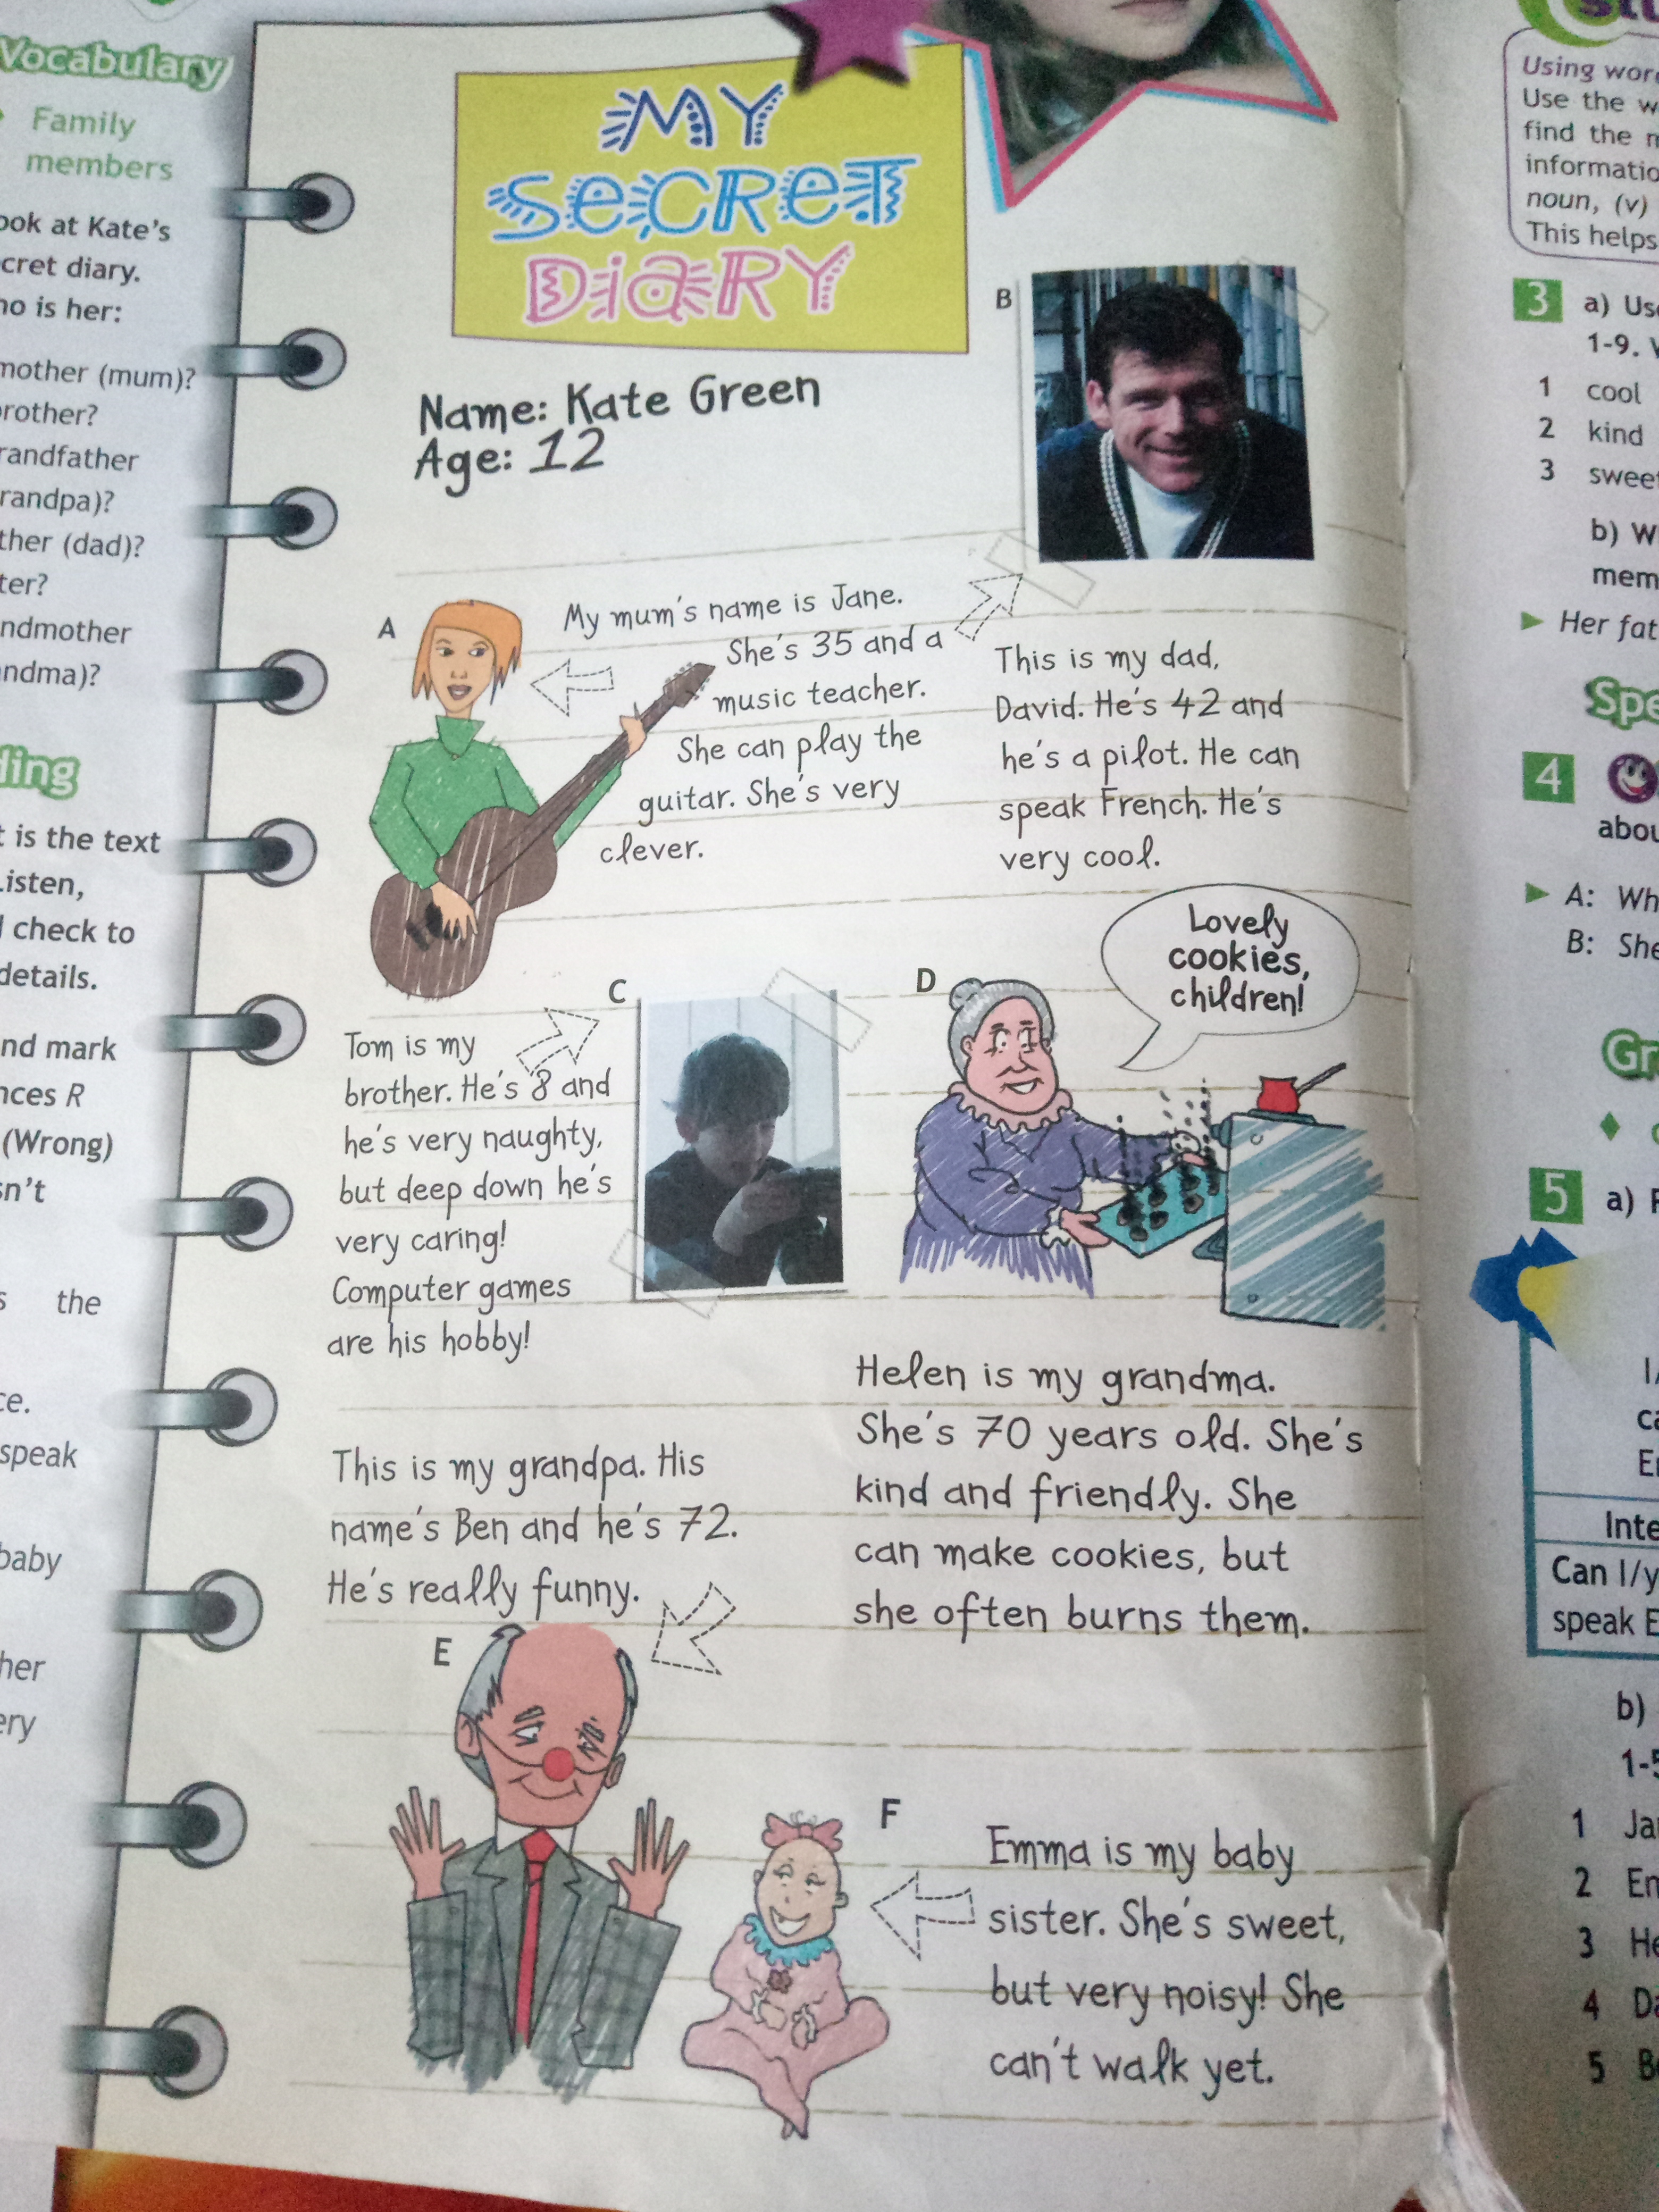 Vocabulary
Family
members
at Kate's
diary.
is her:
(mum)?
(dad)?
is the text
check to
details.
and mark
R
(Wrong)
the
speak
baby
MY
SECRET
DIARY
Name: Kate Green
Age: 12
A
My mum's name is Jane.
She's 35 and a
music teacher.
She can play the
guitar. She's very
clever.
B
This is my dad,
David. He's 42 and
he's a pilot. He can
speak French. He's
very cool.
C
Tom is my
brother. He's 8 and
he's very naughty,
but deep down he's
very caring!
Computer games
are his hobby!
D
Lovely
cookies,
children!
Helen is my grandma.
She's 70 years old. She's
kind and friendly. She
can make cookies, but
she often burns them.
This is my grandpa. His
name's Ben and he's 72.
He's really funny.
E
F
Emma is my baby
sister. She's sweet,
but very noisy! She
can't walk yet.
Using
Use the
find the
noun, (v)
This helps
3 a)
1-9.
1 cool
2 kind
3
b)
Her
4
A:
B: She
5 a)
Can I/
speak
b)
1
2
3
4
5